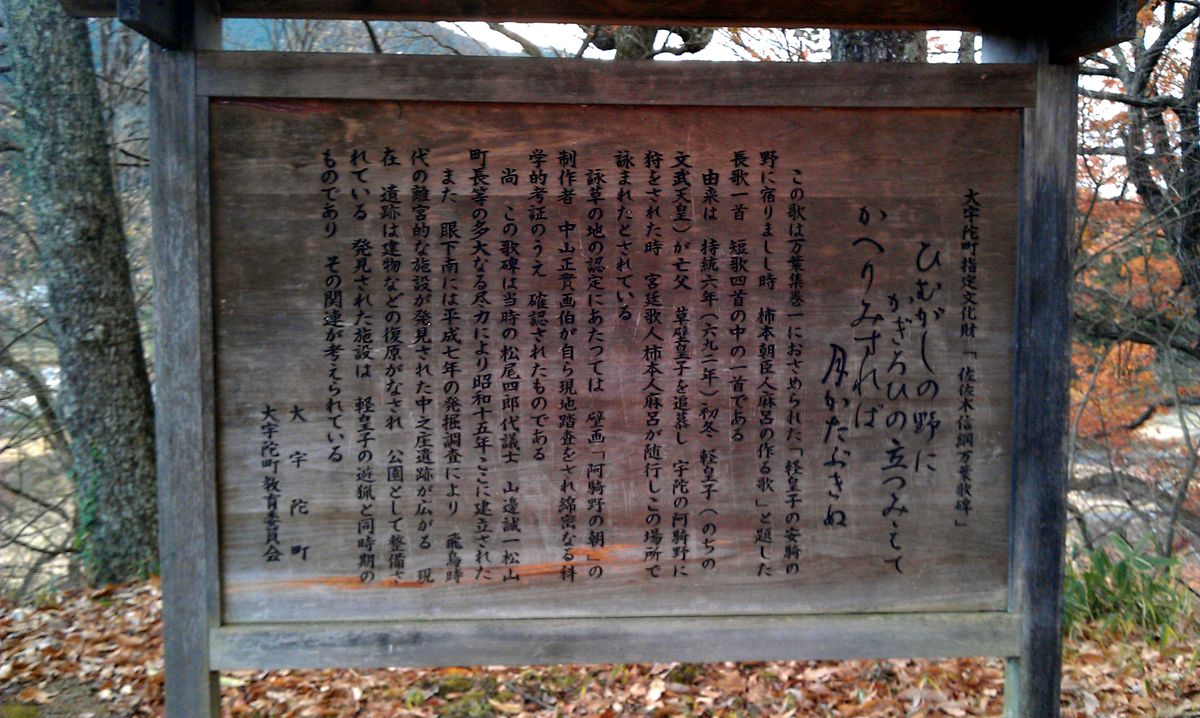 大宇陀町指定文化財「佐佐木信綱万葉歌碑」
ひむがしの野に
かぎろひの立つみえて
かへりみすれば
月かたぶきぬ
この歌は万葉集巻一におさめられた「軽皇子の安騎の
野に宿りましし時　柿本朝臣人麻呂の作る歌」と題した
長歌一首　短歌四首の中の一首である
由来は　持統六年（六九二年）初冬　軽皇子（のちの
文武天皇）が亡父　草壁皇子を追慕し　宇陀の阿騎野に
狩をされた時　宮廷歌人柿本人麻呂が随行しこの場所で
詠まれたとされている
詠草の地の認定にあたつては　壁画「阿騎野の朝」の
制作者　中山正實画伯が自ら現地踏査をされ綿密なる科
学的考証のうえ　確認されたものである
尚　この歌碑は当時の松尾四郎代議士　山邊誠一松山
町長等の多大なる尽力により昭和十五年ここに建立された
また　眼下南には平成七年の発掘調査により　飛鳥時
代の離宮的な施設が発見された中之庄遺跡が広がる　現
在　遺跡は建物などの復原がなされ　公園として整備さ
れている　発見された施設は　軽皇子の遊猟と同時期の
ものであり　その関連が考えられている
大宇陀町
大宇陀町教育委員会